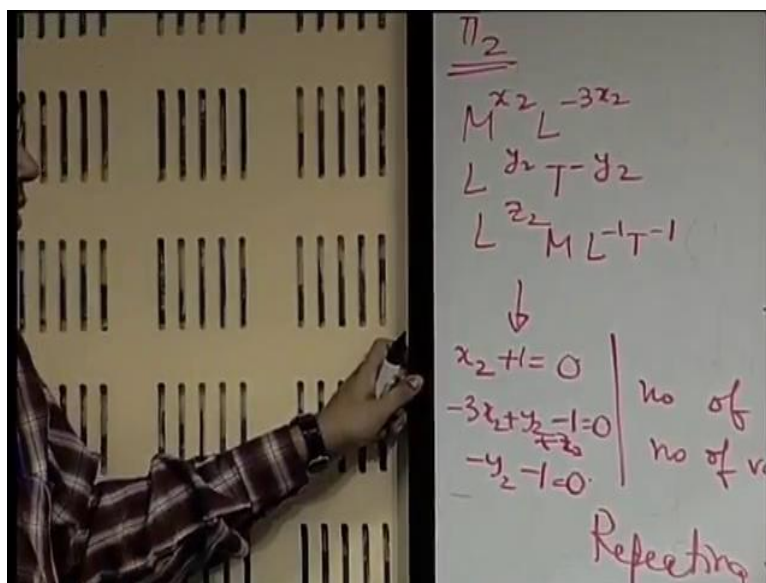 π₂
M^x₂ L^-3x₂
L^y₂ T^-y₂
L^z₂ M L^-1 T^-1
↓
x₂ + 1 = 0
-3x₂ + y₂ - 1 = 0
+z₂
-y₂ - 1 = 0.
no of
no of
Repeating